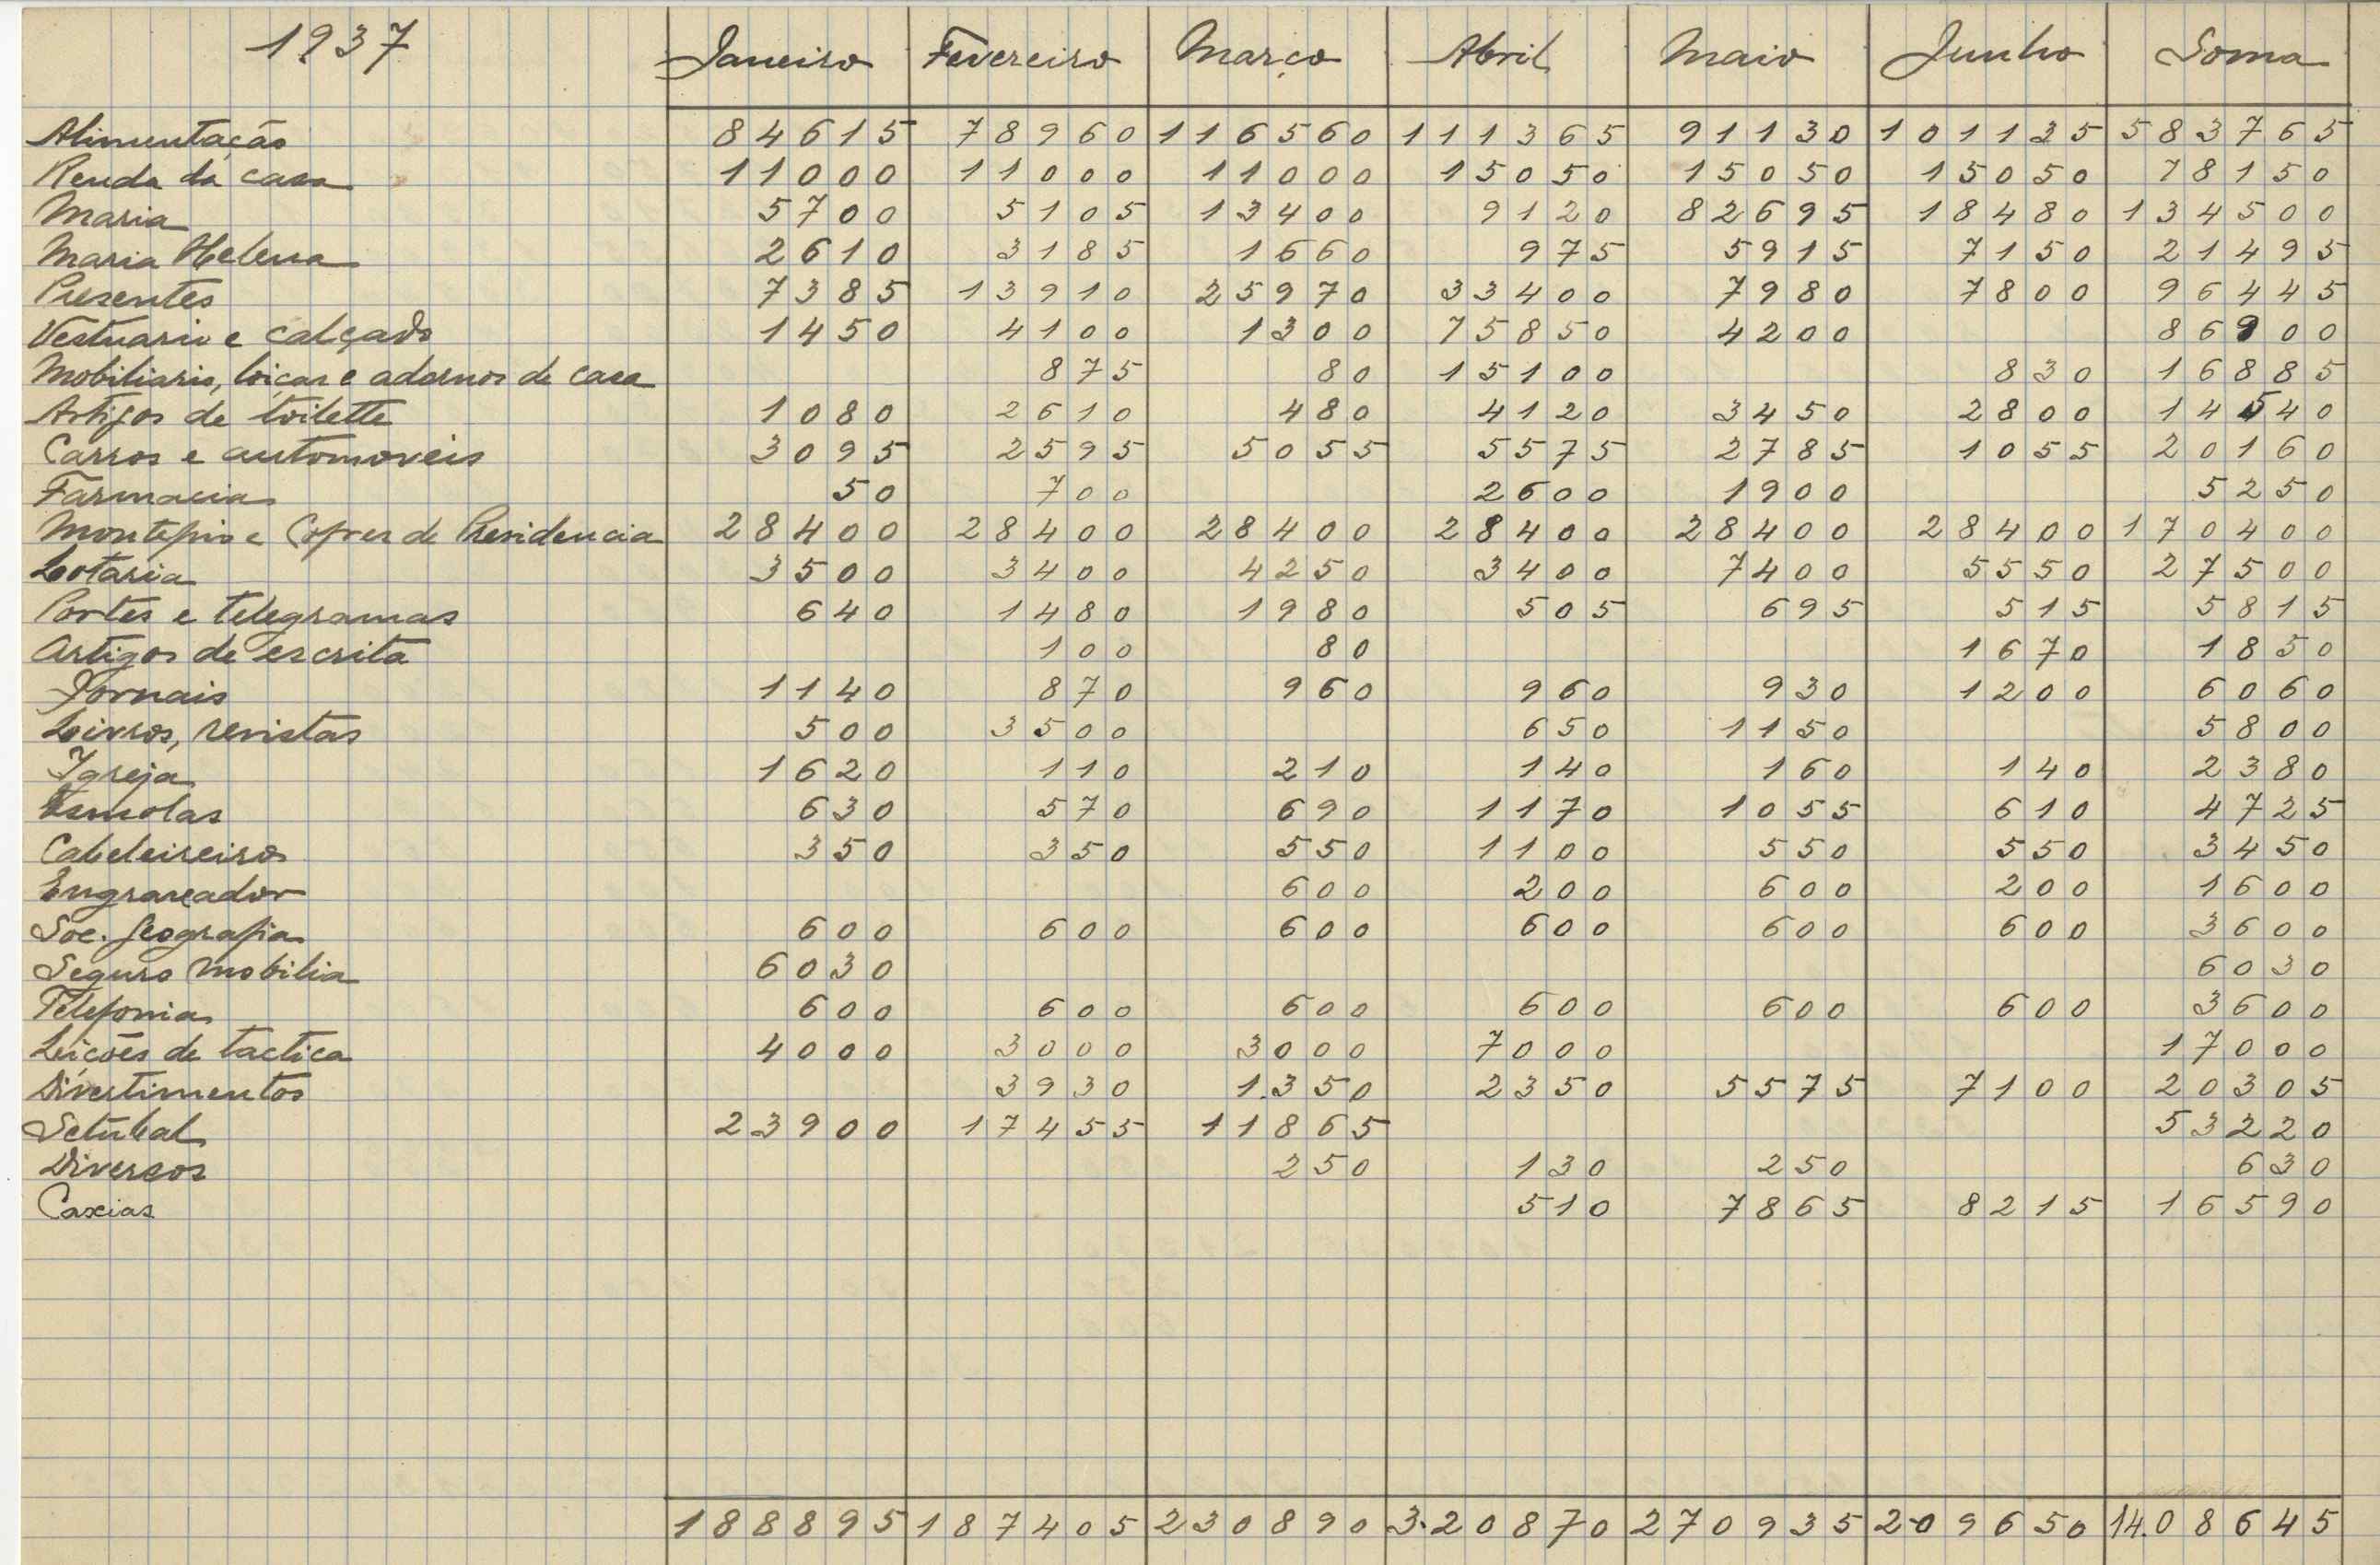 1937 Janeiro Fevereiro Março Abril Maio Junho Soma
Alimentação 84615 78960 116560 111365 91130 101135 583765
Renda da casa 11000 11000 11000 15050 15050 15050 78150
Maria 5700 5105 13400 9120 82695 18480 134500
Maria Helena 2610 3185 1660 975 5915 7150 21495
Presentes 7385 13910 25970 33400 7980 7800 96445
Vestuario e calçado 1450 4100 1300 75850 4200 86900
Mobiliario, loiças e adornos de casa 875 80 15100 830 16885
Artigos de toilette 1080 2610 480 4120 3450 2800 14540
Carros e automoveis 3095 2595 5055 5575 2785 1055 20160
Farmacia 50 700 2600 1900 5250
Montepio e Cofres de Presidencia 28400 28400 28400 28400 28400 28400 170400
Lotaria 3500 3400 4250 3400 7400 5550 27500
Portes e telegramas 640 1480 1980 505 695 515 5815
Artigos de escrita 100 80 1670 1850
Jornais 1140 870 960 960 930 1200 6060
Livros, revistas 500 3500 650 1150 5800
Igreja 1620 110 210 140 160 140 2380
Esmolas 630 570 690 1170 1055 610 4725
Cabeleireiro 350 350 550 1100 550 550 3450
Engraxador 600 200 600 200 1600
Soc. Geografia 600 600 600 600 600 600 3600
Seguro mobilia 6030 6030
Telefonia 600 600 600 600 600 600 3600
Leições de tactica 4000 3000 3000 7000 17000
Divertimentos 3930 1.350 2350 5575 7100 20305
Setubal 23900 17455 11865 53220
Diversos 250 130 250 630
Caxias 510 7865 8215 16590
188895 187405 230890 3.20870 270935 209650 14.08645